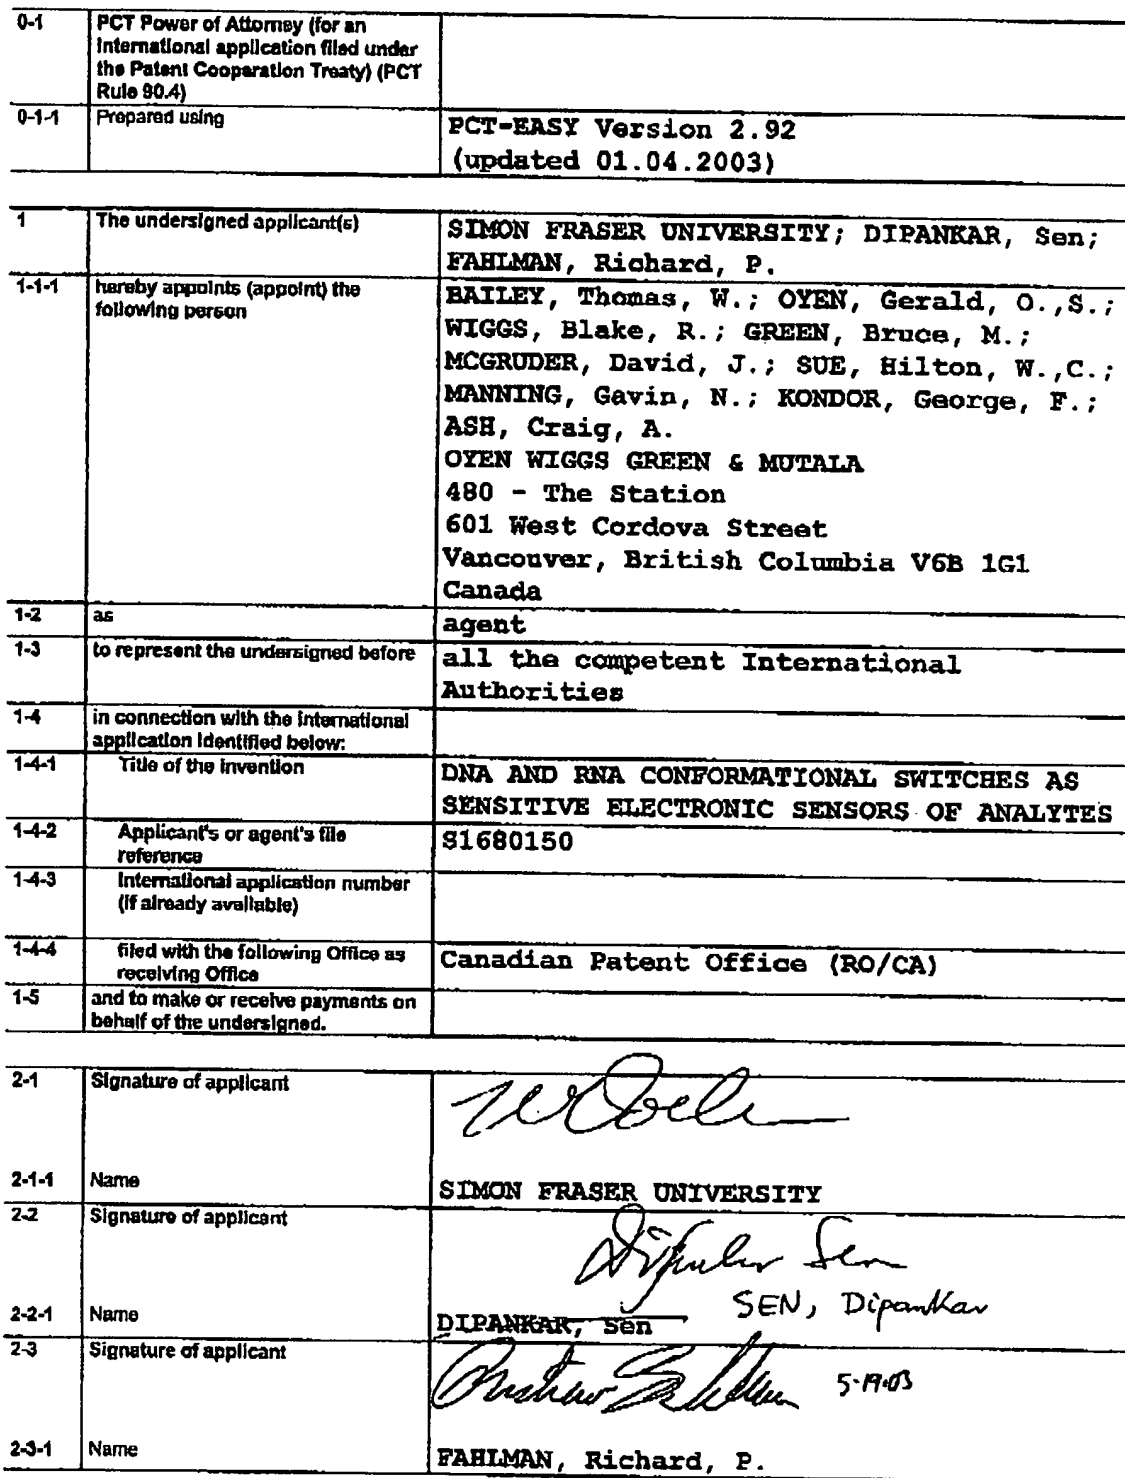 0-1 PCT Power of Attorney (for an
International application filed under
the Patent Cooperation Treaty) (PCT
Rule 90.4)
0-1-1 Prepared using PCT-EASY Version 2.92
(updated 01.04.2003)
1 The undersigned applicant(s) SIMON FRASER UNIVERSITY; DIPANKAR, Sen;
FAHLMAN, Richard, P.
1-1-1 hereby appoints (appoint) the
following person
BAILEY, Thomas, W.; OYEN, Gerald, O.,S.;
WIGGS, Blake, R.; GREEN, Bruce, M.;
MCGRUDER, David, J.; SUE, Hilton, W.,C.;
MANNING, Gavin, N.; KONDOR, George, F.;
ASH, Craig, A.
OYEN WIGGS GREEN & MUTALA
480 - The Station
601 West Cordova Street
Vancouver, British Columbia V6B 1G1
Canada
1-2 as agent
1-3 to represent the undersigned before all the competent International
Authorities
1-4 in connection with the international
application identified below:
1-4-1 Title of the invention DNA AND RNA CONFORMATIONAL SWITCHES AS
SENSITIVE ELECTRONIC SENSORS OF ANALYTES
1-4-2 Applicant's or agent's file
reference
S1680150
1-4-3 International application number
(if already available)
1-4-4 filed with the following Office as
receiving Office
Canadian Patent Office (RO/CA)
1-5 and to make or receive payments on
behalf of the undersigned.
2-1 Signature of applicant
2-1-1 Name SIMON FRASER UNIVERSITY
2-2 Signature of applicant
Dipankar Sen
SEN, Dipankar
2-2-1 Name DIPANKAR, Sen
2-3 Signature of applicant
5-19-03
2-3-1 Name FAHLMAN, Richard, P.